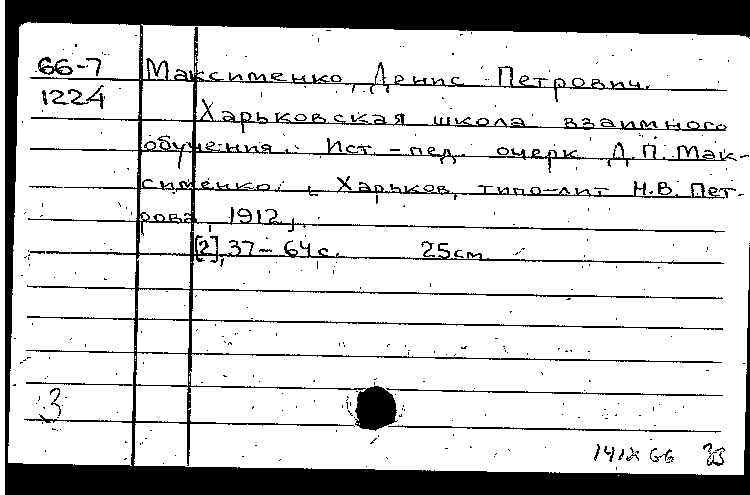 66-7 Максименко, Денис Петрович.
1224 Харьковская школа взаимного
обучения. Ист.-пед. очерк Д.П. Мак-
сименко. Харьков, типо-лит Н.В. Пет-
рова, 1912.
[2], 37-64 с. 25 см.
3
14 IX 66